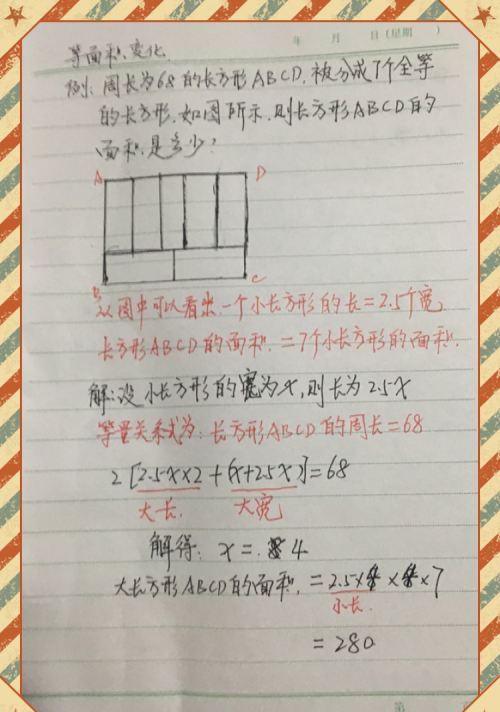 年 月 日(星期 )
等面积变化.
例:周长为68的长方形ABCD,被分成7个全等
的长方形.如图所示,则长方形ABCD的
面积是多少?
A D
B C
从图中可以看出.一个小长方形的长=2.5个宽.
长方形ABCD的面积.=7个小长方形的面积.
解:设小长方形的宽为x,则长为2.5x
等量关系式为:长方形ABCD的周长=68
2[2.5x×2+(x+2.5x)]=68
大长. 大宽
解得:x=.4
大长方形ABCD的面积.=2.5×4×4×7
小长.
=280
第